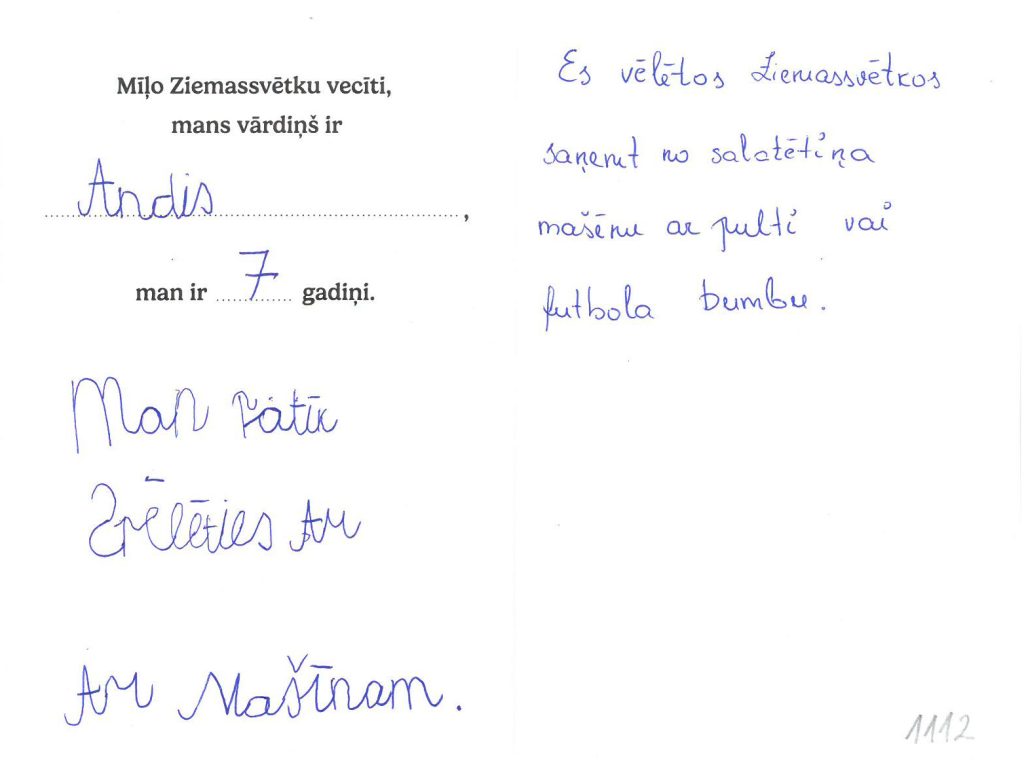 Mīļo Ziemassvētku vecīti,
mans vārdiņš ir
Andis,
man ir 7 gadiņi.
Man Pātīk
Spēlēties Ar
Ar Mašīnam.
Es vēlētos Ziemassvētkos
saņemt no salatētiņa
mašēnu ar pulti vai
futbola bumbu.
1112